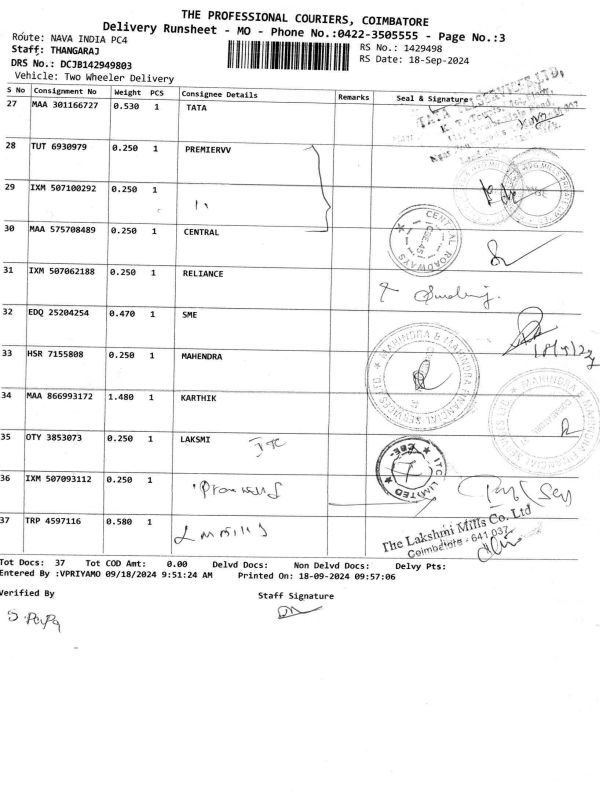 THE PROFESSIONAL COURIERS, COIMBATORE
Delivery Runsheet - MO - Phone No.:0422-3505555 - Page No.:3
Route: NAVA INDIA PC4
RS No.: 1429498
Staff: THANGARAJ
RS Date: 18-Sep-2024
DRS No.: DCJB142949803
Vehicle: Two Wheeler Delivery
S No Consignment No Weight PCS Consignee Details Remarks Seal & Signature
27 MAA 301166727 0.530 1 TATA
28 TUT 6930979 0.250 1 PREMIERVV
29 IXM 507100292 0.250 1 11
30 MAA 575708489 0.250 1 CENTRAL
CENTRAL ROADWAYS
CBE-45
31 IXM 507062188 0.250 1 RELIANCE
32 EDQ 25204254 0.470 1 SME
33 HSR 7155808 0.250 1 MAHENDRA
MAHINDRA & MAHINDRA FINANCIAL SERVICES LTD.
34 MAA 866993172 1.480 1 KARTHIK
MAHINDRA & MAHINDRA FINANCIAL SERVICES LTD.
35 OTY 3853073 0.250 1 LAKSMI ITC
ITC LIMITED
CBE
36 IXM 507093112 0.250 1
37 TRP 4597116 0.580 1 L m mills
The Lakshmi Mills Co. Ltd
Coimbatore - 641 037.
Tot Docs: 37 Tot COD Amt: 0.00 Delvd Docs: Non Delvd Docs: Delvy Pts:
Entered By :VPRIYAMO 09/18/2024 9:51:24 AM Printed On: 18-09-2024 09:57:06
Verified By
Staff Signature